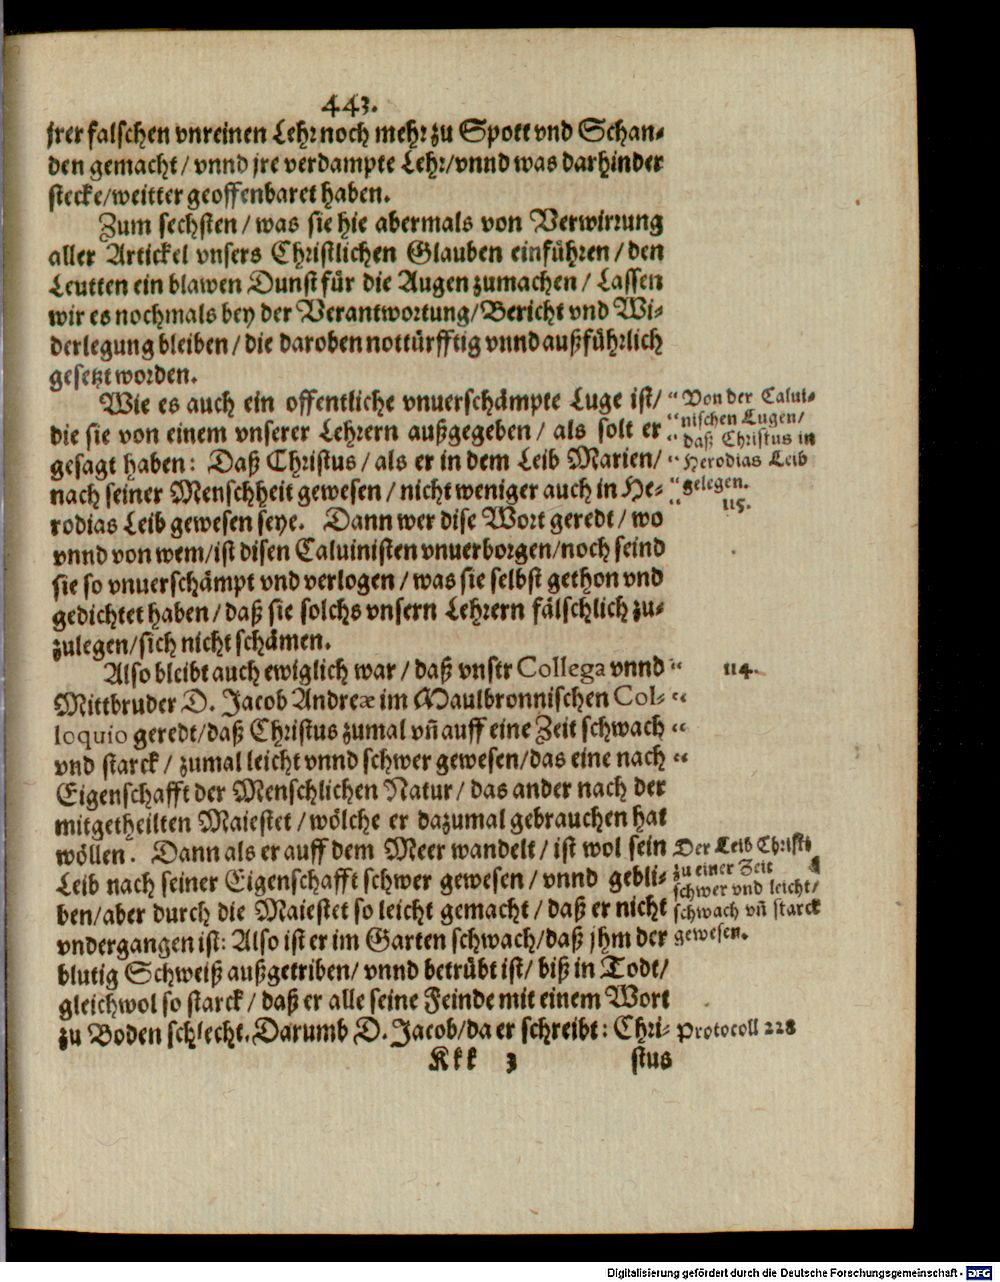 443.
jrer falschen vnreinen Lehr noch mehr zu Spott vnd Schan-
den gemacht / vnnd jre verdampte Lehr/vnnd was darhinder
stecke/weitter geoffenbaret haben.
Zum sechsten / was sie hie abermals von Verwirrung
aller Artickel vnsers Christlichen Glauben einführen / den
Leutten ein blawen Dunst für die Augen zumachen / Lassen
wir es nochmals bey der Verantwortung/Bericht vnd Wi-
derlegung bleiben / die daroben nottürfftig vnnd außführlich
gesetzt worden.
Wie es auch ein offentliche vnuerschämpte Luge ist/
die sie von einem vnserer Lehrern außgegeben / als solt er
gesagt haben: Daß Christus / als er in dem Leib Marien/
nach seiner Menschheit gewesen / nicht weniger auch in He-
rodias Leib gewesen seye. Dann wer dise Wort geredt / wo
vnnd von wem/ist disen Caluinisten vnuerborgen/noch seind
sie so vnuerschämpt vnd verlogen / was sie selbst gethon vnd
gedichtet haben / daß sie solchs vnsern Lehrern fälschlich zu-
zulegen/sich nicht schämen.
“ Von der Calui-
“ nischen Lugen/
“ daß Christus in
“ Herodias Leib
“ gelegen.
“ 115.
Also bleibt auch ewiglich war / daß vnser Collega vnnd “
Mittbruder D. Jacob Andreæ im Maulbronnischen Col- “
loquio geredt/daß Christus zumal vñ auff eine Zeit schwach “
vnd starck / zumal leicht vnnd schwer gewesen/das eine nach “
Eigenschafft der Menschlichen Natur / das ander nach der
mitgetheilten Maiestet / wölche er dazumal gebrauchen hat
wöllen. Dann als er auff dem Meer wandelt / ist wol sein
Leib nach seiner Eigenschafft schwer gewesen / vnnd gebli-
ben/aber durch die Maiestet so leicht gemacht / daß er nicht
vndergangen ist: Also ist er im Garten schwach/daß jhm der
blutig Schweiß außgetriben/ vnnd betrübt ist/ biß in Todt/
gleichwol so starck / daß er alle seine Feinde mit einem Wort
zu Boden schlecht. Darumb D. Jacob/da er schreibt: Chri-
114.
Der Leib Christi
zu einer Zeit
schwer vnd leicht/
schwach vñ starck
gewesen.
Protocoll 228
Kkk 3 stus
Digitalisierung gefördert durch die Deutsche Forschungsgemeinschaft - DFG